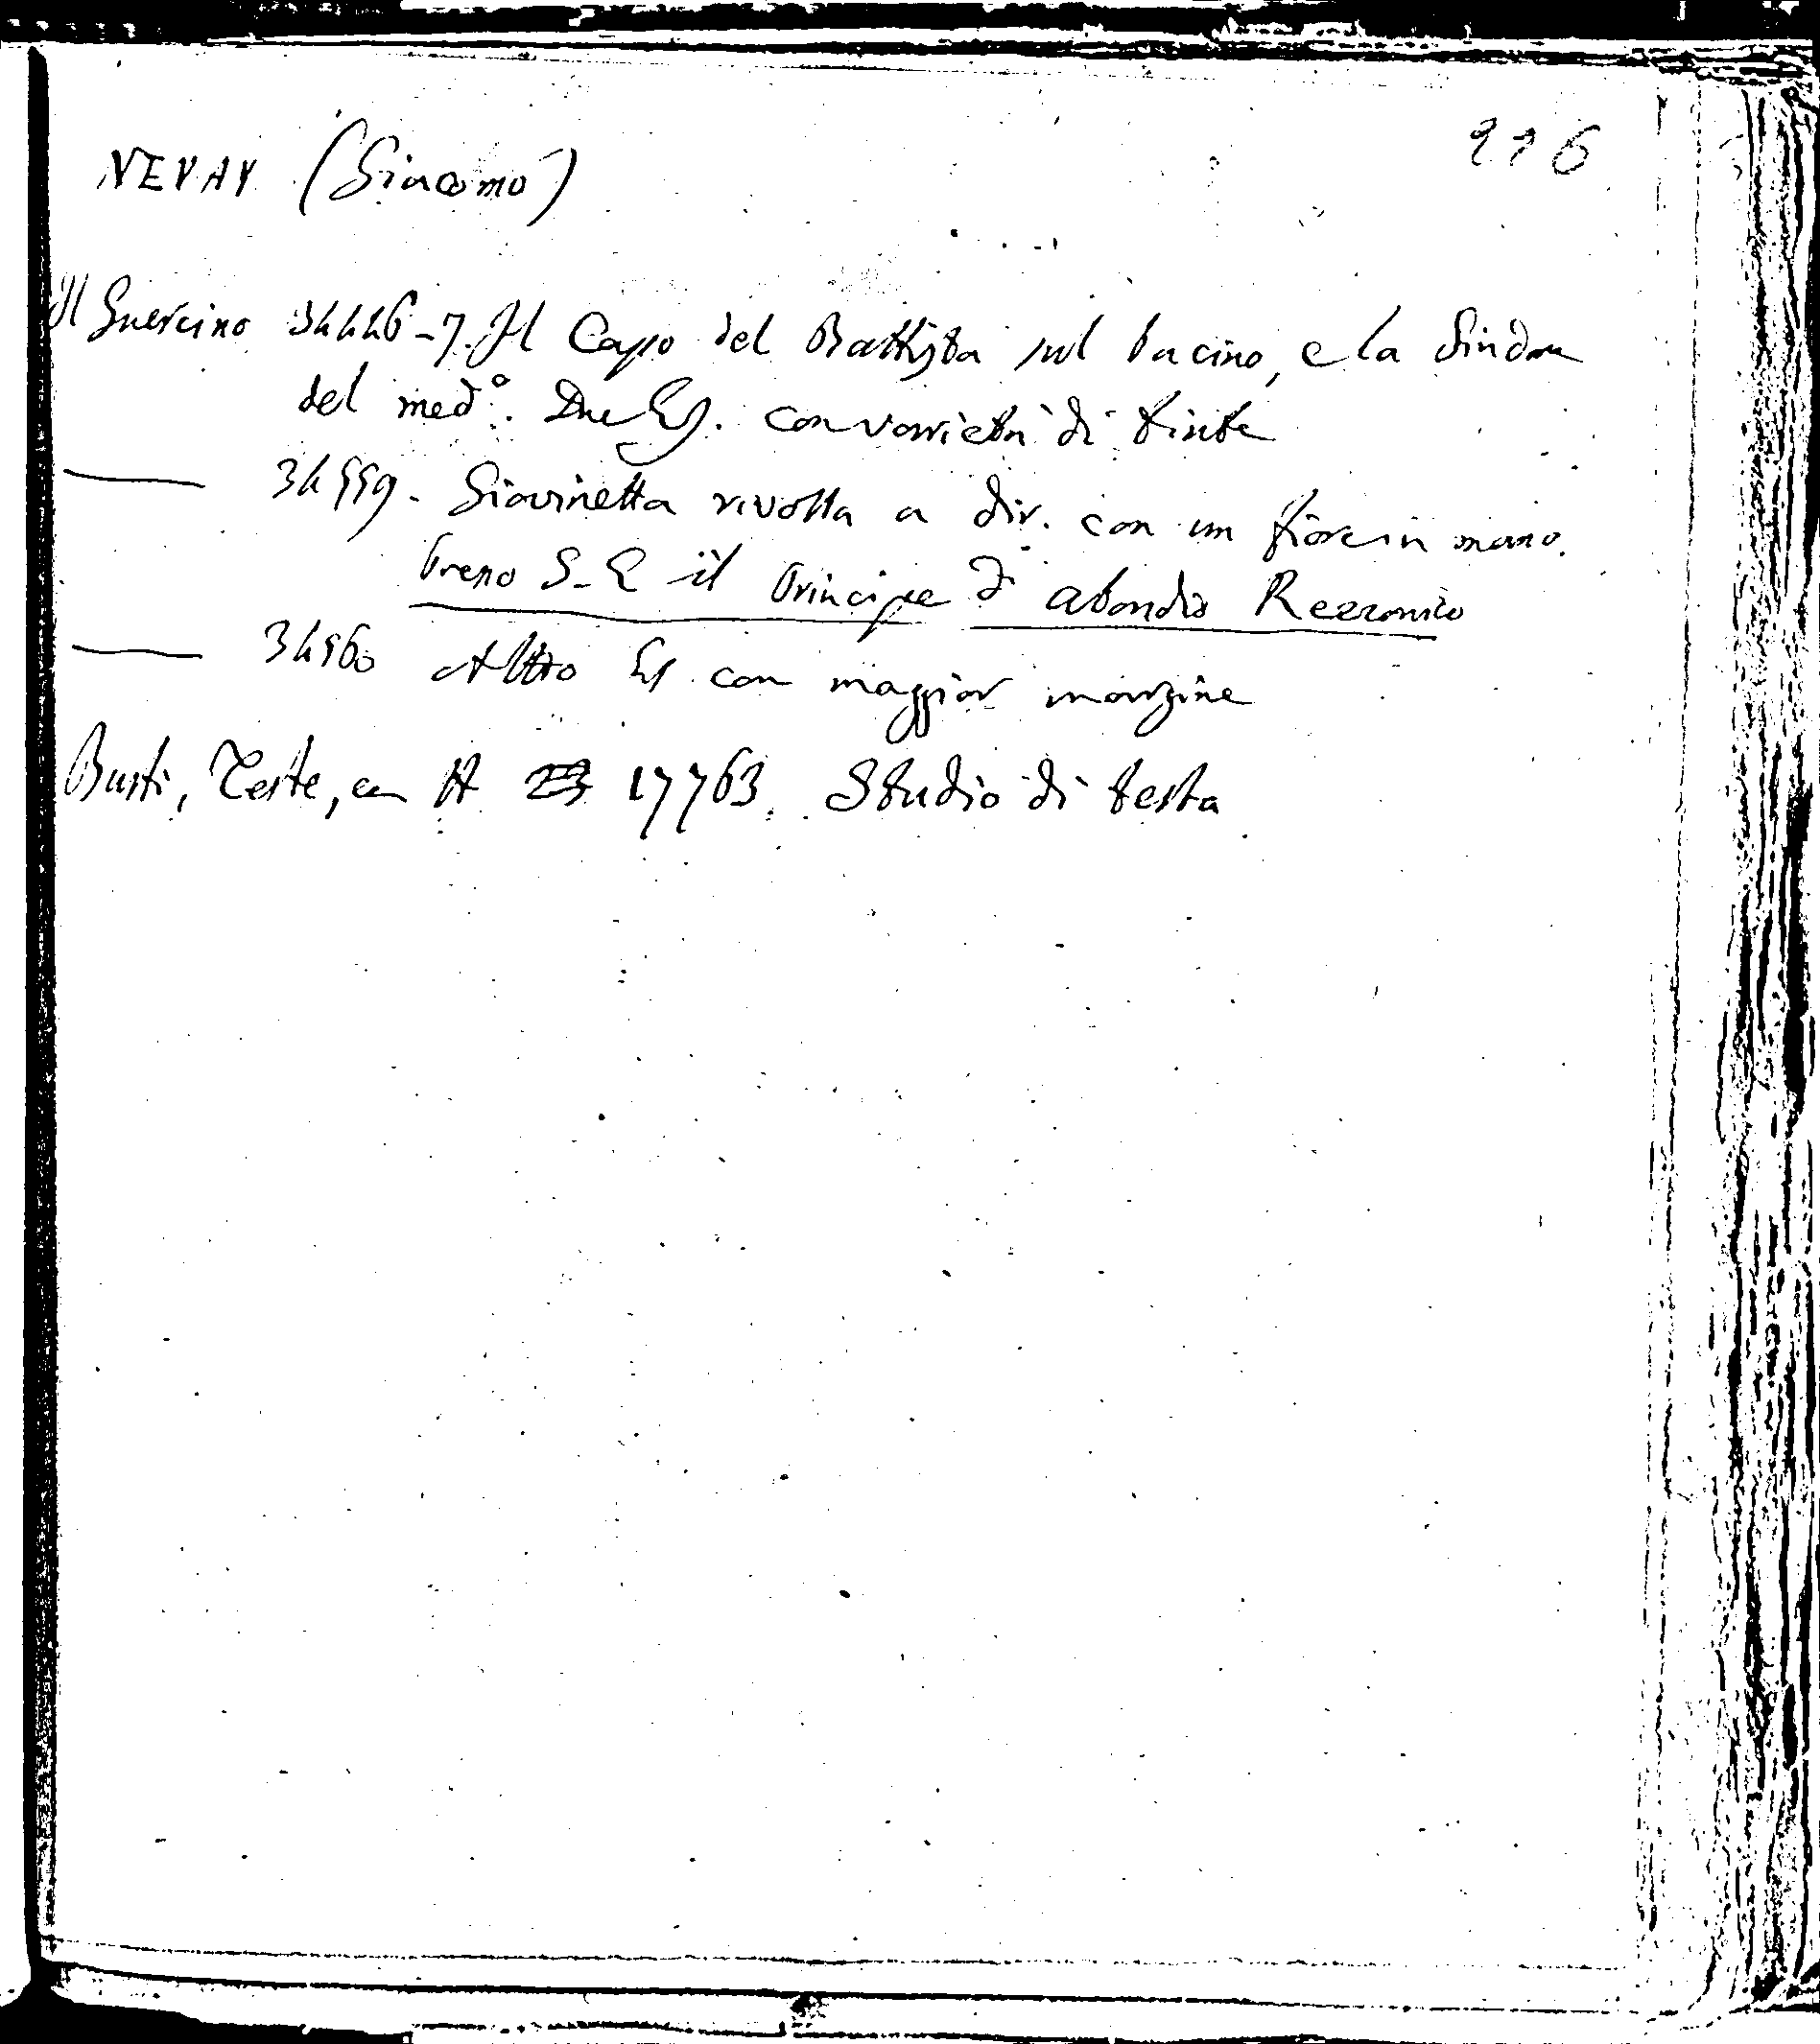 276
NEVAY (Giacomo)
Il Guercino 34446-7. Il Capo del Battista sul bacino, e la Sindon
del med°. Due Es. con varrietà di tinte
—— 34559. Giovinetta rivolta a dir. con un fiore in mano.
Preso S-E il Principe d' Abondio Rezzonico
—— 34560 Altro Es. con maggior margine
Busti, Teste, 17763. Studio di testa